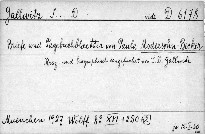 Gallwitz S. D. D 6178
Briefe und Tagebuchblaetter von Paula Modersohn Becker
Hrsg. und biographisch eingeleitet von S. D. Gallwitz
Muenchen 1927 Wolff 8° XVI + 250 [S]